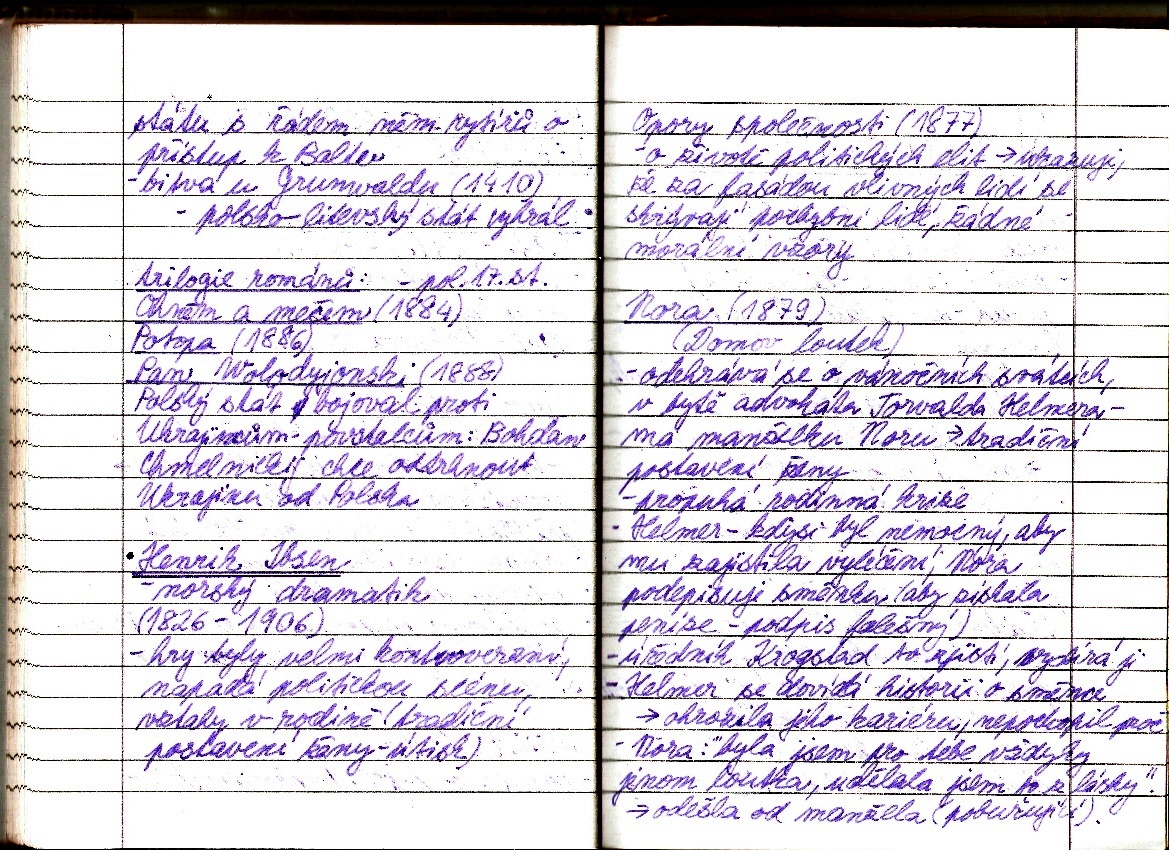 státu s řádem něm. rytířů o
přístup k Baltu
- bitva u Grunwaldu (1410)
- polsko-litevský stát vyhrál
trilogie románů: - pol. 17. st.
Ohněm a mečem (1884)
Potopa (1886)
Pan Wolodyjonski (1888)
Polský stát bojoval proti
Ukrajincům-povstalcům: Bohdan
Chmelnickij chce odtrhnout
Ukrajinu od Polska
Henrik Ibsen
- norský dramatik
(1826 - 1906)
- hry byly velmi kontroverzní,
napadá politickou scénu,
vztahy v rodině (tradiční
postavení ženy - útisk)
Opory společnosti (1877)
- o životě politických elit → ukazuje,
že za fasádou vlivných lidí se
skrývají pochybní lidé, žádné
morální vzory
Nora (1879)
(Domov loutek)
- odehrává se o vánočních svátcích,
v bytě advokáta Torvalda Helmera -
má manželku Noru → tradiční
postavení ženy
- propuká rodinná krize
- Helmer - kdysi byl nemocný, aby
mu zajistila vyléčení, Nora
podepisuje směnku (aby získala
peníze - podpis falešný)
- úředník Krogstad to zjistí, vydírá ji
- Helmer se dovídá historii o směnce
→ ohrozila jeho kariéru, nepochopil proč
- Nora: "byla jsem pro tebe vždycky
jenom loutka, udělala jsem to z lásky".
→ odešla od manžela (pobuřující).